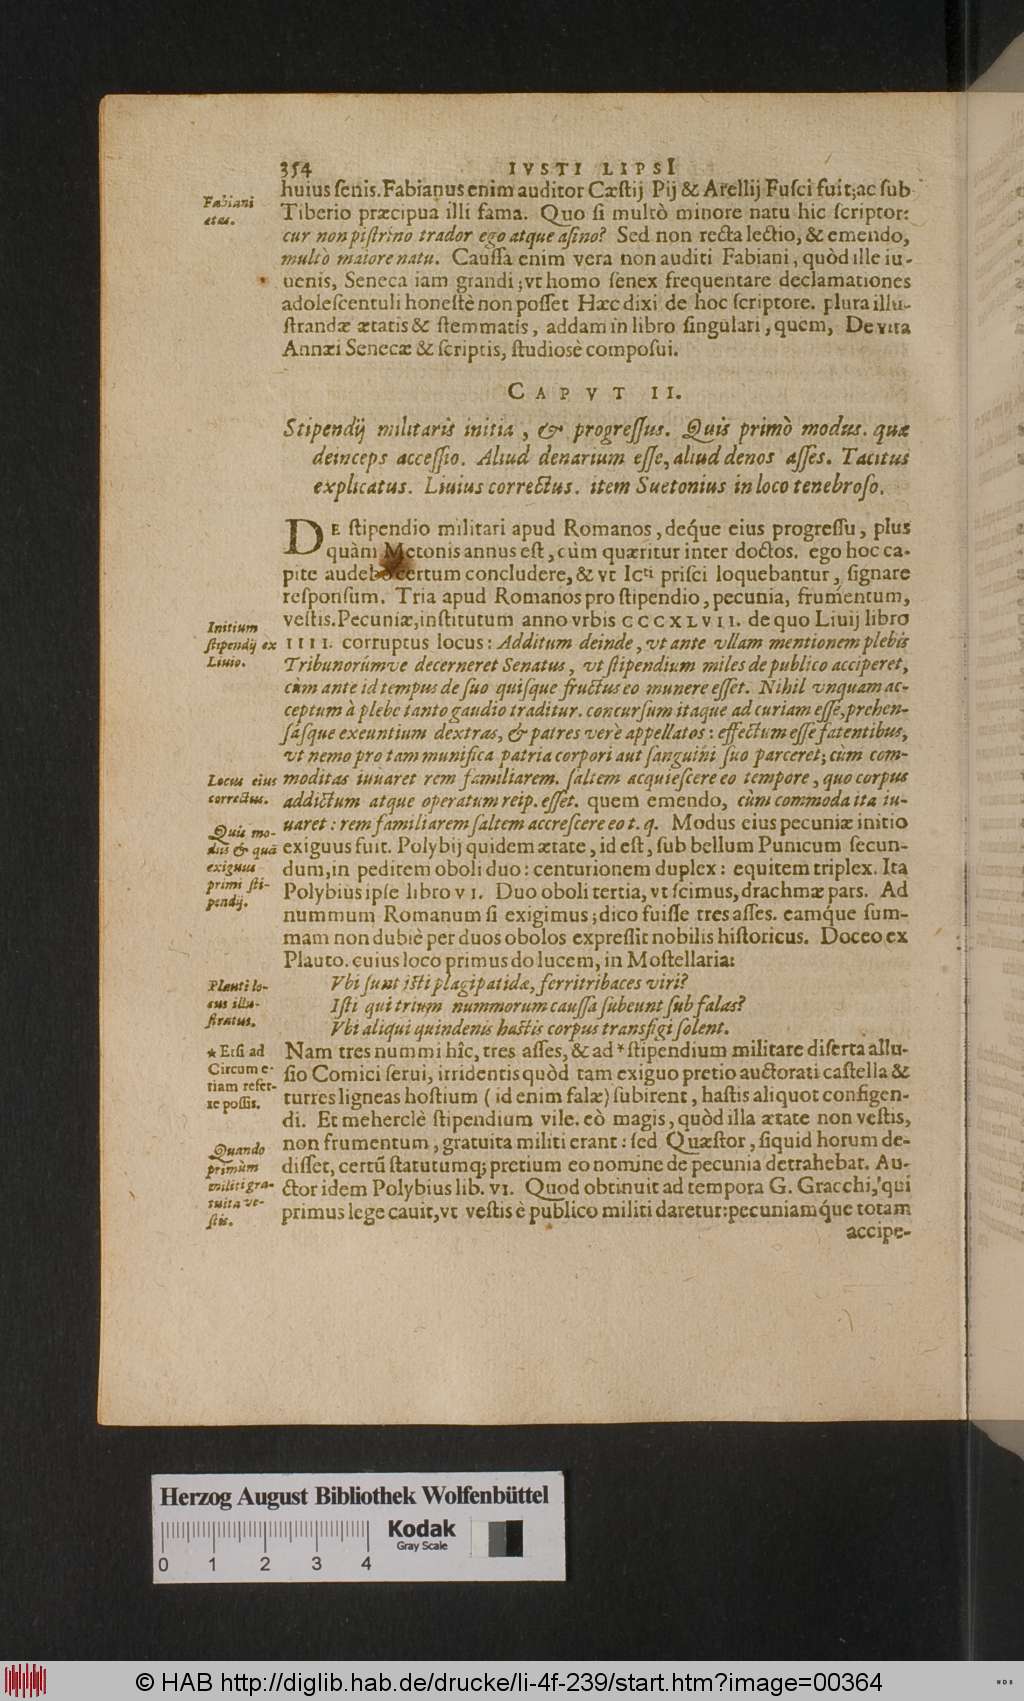 354 IVSTI LIPSI
huius ſenis. Fabianus enim auditor Cæſtij Pij & Arellij Fuſci fuit; ac ſub
Tiberio præcipua illi fama. Quo ſi multò minore natu hic ſcriptor:
cur non piſtrino trador ego atque aſino? Sed non recta lectio, & emendo,
multò maiore natu. Cauſſa enim vera non auditi Fabiani, quòd ille iu-
uenis, Seneca iam grandi; vt homo ſenex frequentare declamationes
adoleſcentuli honeſtè non poſſet Hæc dixi de hoc ſcriptore. plura illu-
ſtrandæ ætatis & ſtemmatis, addam in libro ſingulari, quem, De vita
Annæi Senecæ & ſcriptis, ſtudiosè compoſui.
Fabiani
etas.
CAPVT II.
Stipendij militaris initia, & progreſſus. Quis primò modus. quæ
deinceps acceſſio. Aliud denarium eſſe, aliud denos aſſes. Tacitus
explicatus. Liuius correctus. item Suetonius in loco tenebroſo.
DE ſtipendio militari apud Romanos, deq́ue eius progreſſu, plus
quàm Metonis annus eſt, cùm quæritur inter doctos. ego hoc ca-
pite audebo certum concludere, & vt Icti priſci loquebantur, ſignare
reſponſum. Tria apud Romanos pro ſtipendio, pecunia, frumentum,
veſtis. Pecuniæ, inſtitutum anno vrbis CCCXLVII. de quo Liuij libro
IIII. corruptus locus: Additum deinde, vt ante vllam mentionem plebis
Tribunorúmve decerneret Senatus, vt ſtipendium miles de publico acciperet,
cùm ante id tempus de ſuo quiſque fructus eo munere eſſet. Nihil vnquam ac-
ceptum à plebe tanto gaudio traditur. concurſum itaque ad curiam eſſe, prehen-
ſáſque exeuntium dextras, & patres verè appellatos: effectum eſſe fatentibus,
vt nemo pro tam munifica patria corpori aut ſanguini ſuo parceret; cùm com-
moditas iuuaret rem familiarem. ſaltem acquieſcere eo tempore, quo corpus
addictum atque operatum reip. eſſet. quem emendo, cùm commoda ita iu-
uaret: rem familiarem ſaltem accreſcere eo t. q. Modus eius pecuniæ initio
exiguus fuit. Polybij quidem ætate, id eſt, ſub bellum Punicum ſecun-
dum, in peditem oboli duo: centurionem duplex: equitem triplex. Ita
Polybius ipſe libro VI. Duo oboli tertia, vt ſcimus, drachmæ pars. Ad
nummum Romanum ſi exigimus; dico fuiſſe tres aſſes. eamq́ue ſum-
mam non dubiè per duos obolos expreſſit nobilis hiſtoricus. Doceo ex
Plauto. cuius loco primus do lucem, in Moſtellaria:
Vbi ſunt iſti plagipatidæ, ferritribaces viri?
Iſti qui trium nummorum cauſſa ſubeunt ſub falas?
Vbi aliqui quindenis haſtis corpus transfigi ſolent.
Nam tres nummi hîc, tres aſſes, & ad * ſtipendium militare diſerta allu-
ſio Comici ſerui, irridentis quòd tam exiguo pretio auctorati caſtella &
turres ligneas hoſtium (id enim falæ) ſubirent, haſtis aliquot configen-
di. Et meherclè ſtipendium vile. eò magis, quòd illa ætate non veſtis,
non frumentum, gratuita militi erant: ſed Quæſtor, ſiquid horum de-
diſſet, certũ ſtatutumq; pretium eo nomine de pecunia detrahebat. Au-
ctor idem Polybius lib. VI. Quod obtinuit ad tempora G. Gracchi, qui
primus lege cauit, vt veſtis è publico militi daretur: pecuniamq́ue totam
accipe-
Initium
ſtipendij ex
Liuio.
Locus eius
correctus.
Quis mo-
dus & quã
exiguus
primi ſti-
pendij.
Plauti lo-
cus illu-
ſtratus.
* Etſi ad
Circum e-
tiam refer-
re poſſis.
Quando
primùm
militi gra-
tuita ve-
ſtis.
Herzog August Bibliothek Wolfenbüttel
Kodak
Gray Scale
0 1 2 3 4
© HAB http://diglib.hab.de/drucke/li-4f-239/start.htm?image=00364